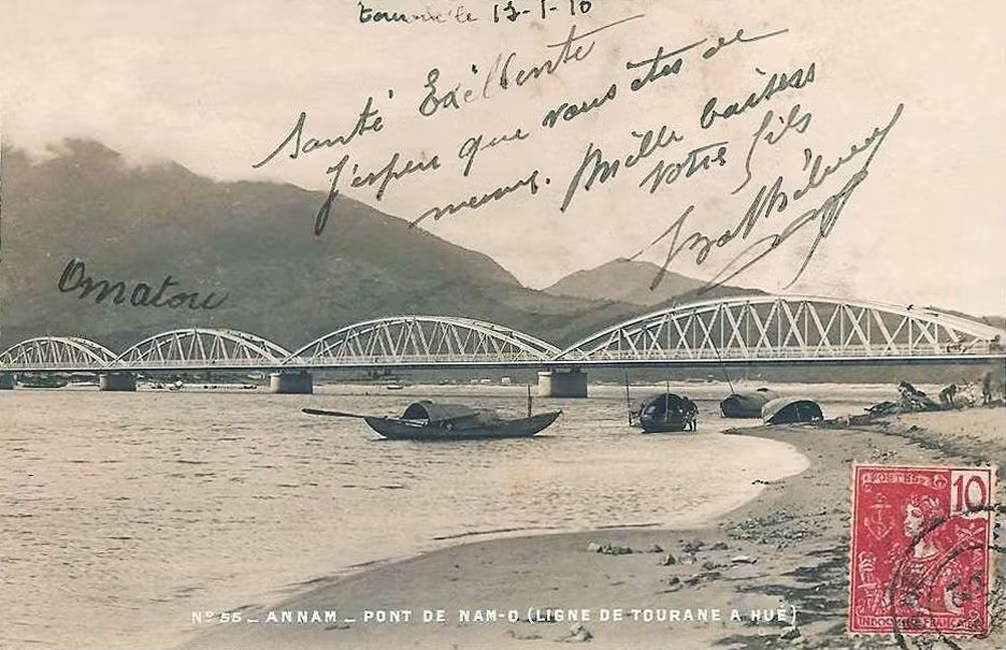 le 13-1-10
Santé Exéllente
J'espèr que vous êtes de
meme. Mille baisers
Votre fils
Omatou
POSTES
10
INDO-CHINE FRANÇAISE
Nº 55 _ ANNAM _ PONT DE NAM-O (LIGNE DE TOURANE A HUÉ)